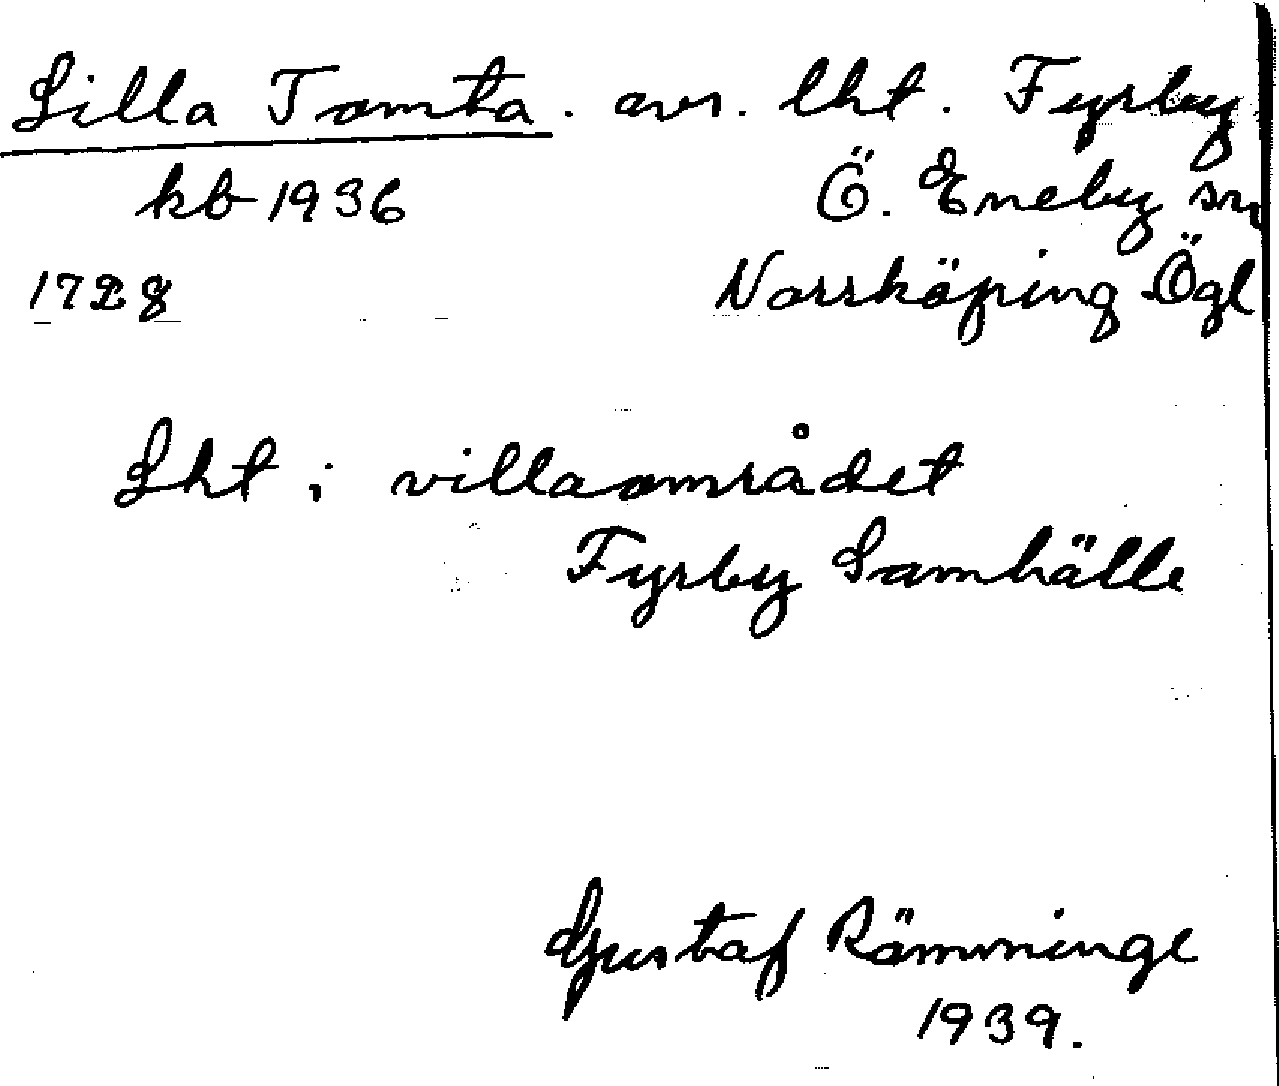 Lilla Tomta. avs. lht. Fyrby
kb 1936 Ö. Eneby sn
1728 Norrköping Ögl
Lht i villaområdet
Fyrby Samhälle
Gustaf Rämninge
1939.